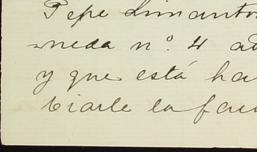 Pepe Limanto
neda nº. 4 a
y que está ha
biarle la fau